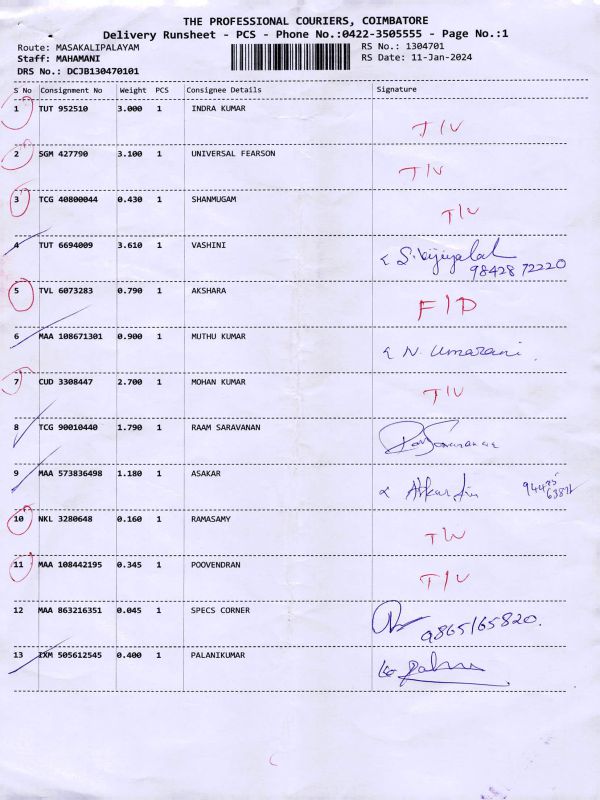 THE PROFESSIONAL COURIERS, COIMBATORE
Delivery Runsheet - PCS - Phone No.:0422-3505555 - Page No.:1
Route: MASAKALIPALAYAM RS No.: 1304701
Staff: MAHAMANI RS Date: 11-Jan-2024
DRS No.: DCJB130470101
S No Consignment No Weight PCS Consignee Details Signature
1 TUT 952510 3.000 1 INDRA KUMAR T/V
2 SGM 427790 3.100 1 UNIVERSAL FEARSON T/V
3 TCG 40800044 0.430 1 SHANMUGAM T/V
4 TUT 6694009 3.610 1 VASHINI S. Vijiyalah
9842872220
5 TVL 6073283 0.790 1 AKSHARA F/D
6 MAA 108671301 0.900 1 MUTHU KUMAR N. Umarani.
7 CUD 3308447 2.700 1 MOHAN KUMAR T/V
8 TCG 90010440 1.790 1 RAAM SARAVANAN
9 MAA 573836498 1.180 1 ASAKAR
10 NKL 3280648 0.160 1 RAMASAMY T/V
11 MAA 108442195 0.345 1 POOVENDRAN T/V
12 MAA 863216351 0.045 1 SPECS CORNER 9865165820.
13 IXM 505612545 0.400 1 PALANIKUMAR